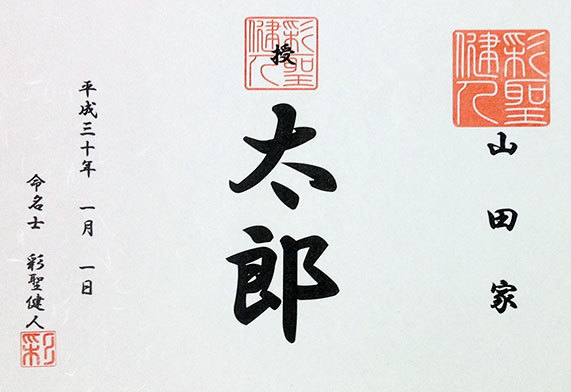 彩聖健人
山田家
彩聖健人
授
太郎
平成三十年 一月 一日
命名士 彩聖健人
彩